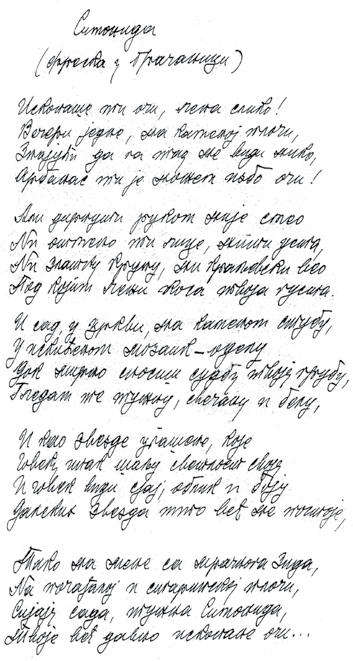 Симонида
(фреска у Грачаници)
Ископаше ти очи, лепа слико!
Вечери једне, на каменој плочи,
Знајући да га тад не види нико,
Арбанас ти је ножем избо очи!
Али дирнути руком није смео
Ни отмено ти лице, нити уста,
Ни златну круну, ни краљевски вео
Под којим лежи коса твоја густа.
И сад у цркви, на каменом стубу,
У искићеном мозаик-оделу
Док мирно сносиш судбу твоју грубу,
Гледам те тужну, свечану и белу,
И као звезде угашене, које
Човеку ипак шаљу светлост своју
И човек види сјај, облик и боју
Далеких звезда што већ не постоје,
Тако на мене са мрачнога зида,
На почађалој и старинској плочи,
Сијају сада, тужна Симонида,
Твоје већ давно ископане очи...